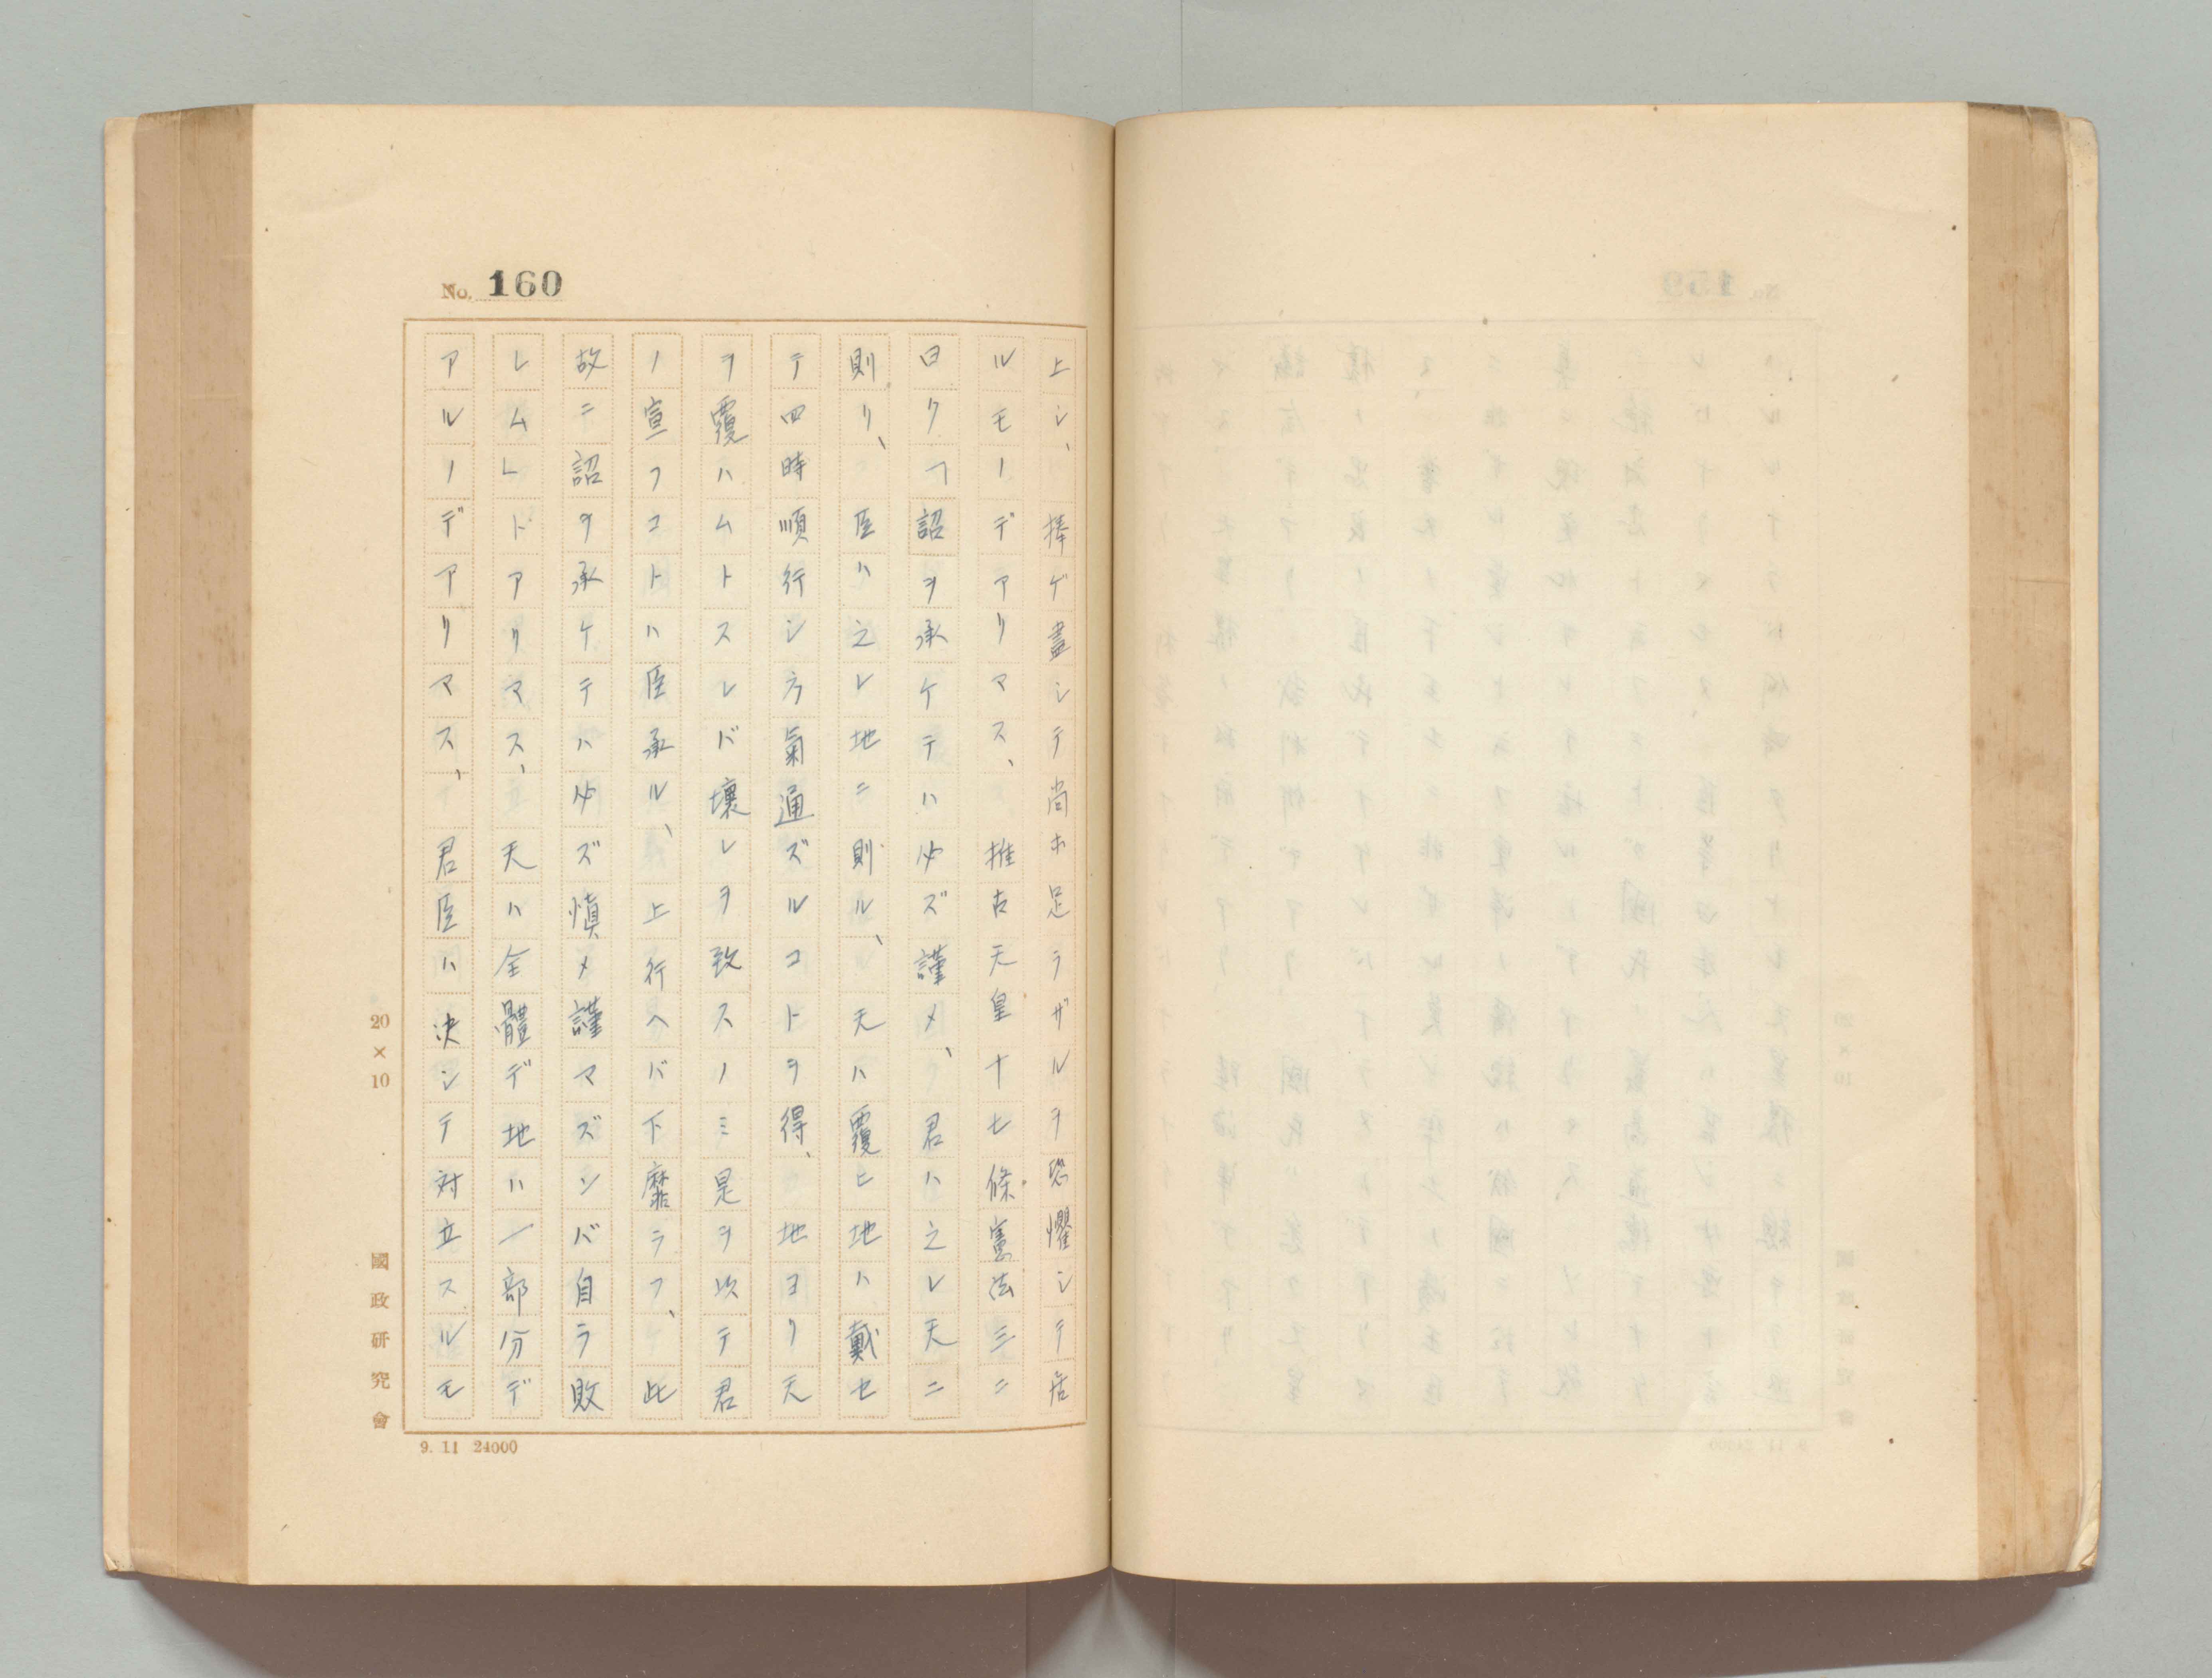 No. 160
上シ、捧ゲ盡シテ尚ホ足ラザルヲ恐懼シテ居
ルモノデアリマス、推古天皇十七條憲法三ニ
曰ク「詔ヲ承ケテハ必ズ謹メ、君ハ之レ天ニ
則リ、臣ハ之レ地ニ則ル、天ハ覆ヒ地ハ戴セ
テ四時順行シ方氣通ズルコトヲ得、地ヨリ天
ヲ覆ハムトスレバ壞レヲ致スノミ是ヲ以テ君
ノ宣フコトハ臣承ル、上行ヘバ下靡ラフ、此
故ニ詔ヲ承ケテハ必ズ愼メ謹マズンバ自ラ敗
レム」トアリマス、天ハ全體デ地ハ一部分デ
アルノデアリマス、君臣ハ決シテ対立スルモ
20×10
國政研究會
9. 11 24000